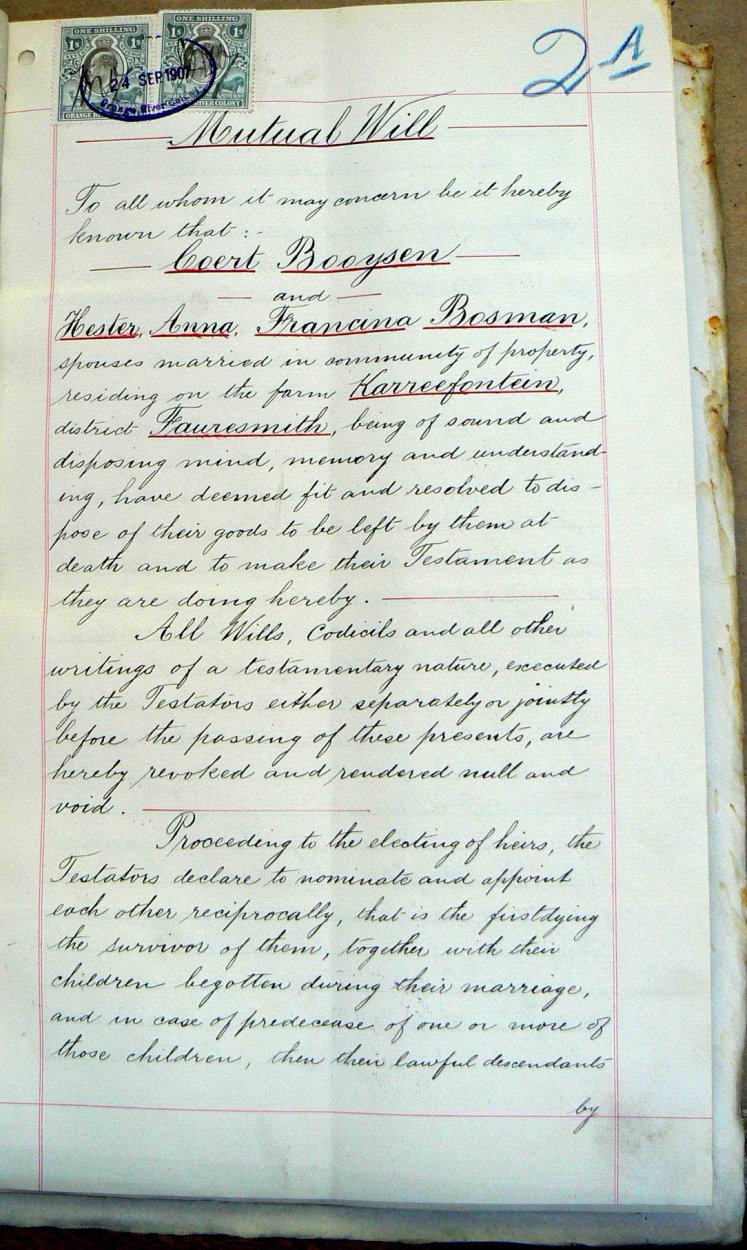 ONE SHILLING
1s 1s
ONE SHILLING
1s 1s
24 SEP 1907
Orange River Colony
ORANGE RIVER COLONY
2A
Mutual Will
To all whom it may concern be it hereby
known that :-
Coert Booysen
and
Hester, Anna, Francina Bosman,
spouses married in community of property,
residing on the farm Karreefontein,
district Fauresmith, being of sound and
disposing mind, memory and understand-
ing, have deemed fit and resolved to dis-
pose of their goods to be left by them at
death and to make their Testament as
they are doing hereby.
All Wills, Codicils and all other
writings of a testamentary nature, executed
by the Testators either separately or jointly
before the passing of these presents, are
hereby revoked and rendered null and
void.
Proceeding to the electing of heirs, the
Testators declare to nominate and appoint
each other reciprocally, that is the firstdying
the survivor of them, together with their
children begotten during their marriage,
and in case of predecease of one or more of
those children, then their lawful descendants
by